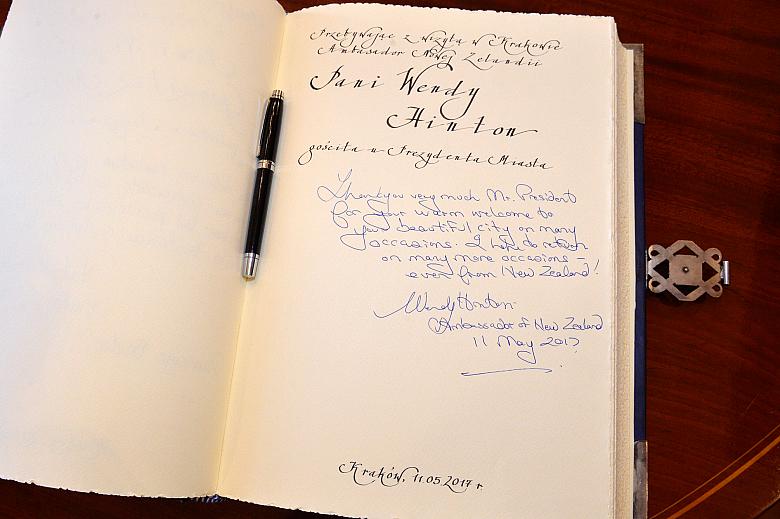 Przebywając z wizytą w Krakowie
Ambasador Nowej Zelandii
Pani Wendy
Hinton
gościła u Prezydenta Miasta
Thank you very much Mr. President
for your warm welcome to
your beautiful city on many
occasions. I hope to return
on many more occasions –
even from New Zealand!
Wendy Hinton
Ambassador of New Zealand
11 May 2017
Kraków, 11.05.2017 r.